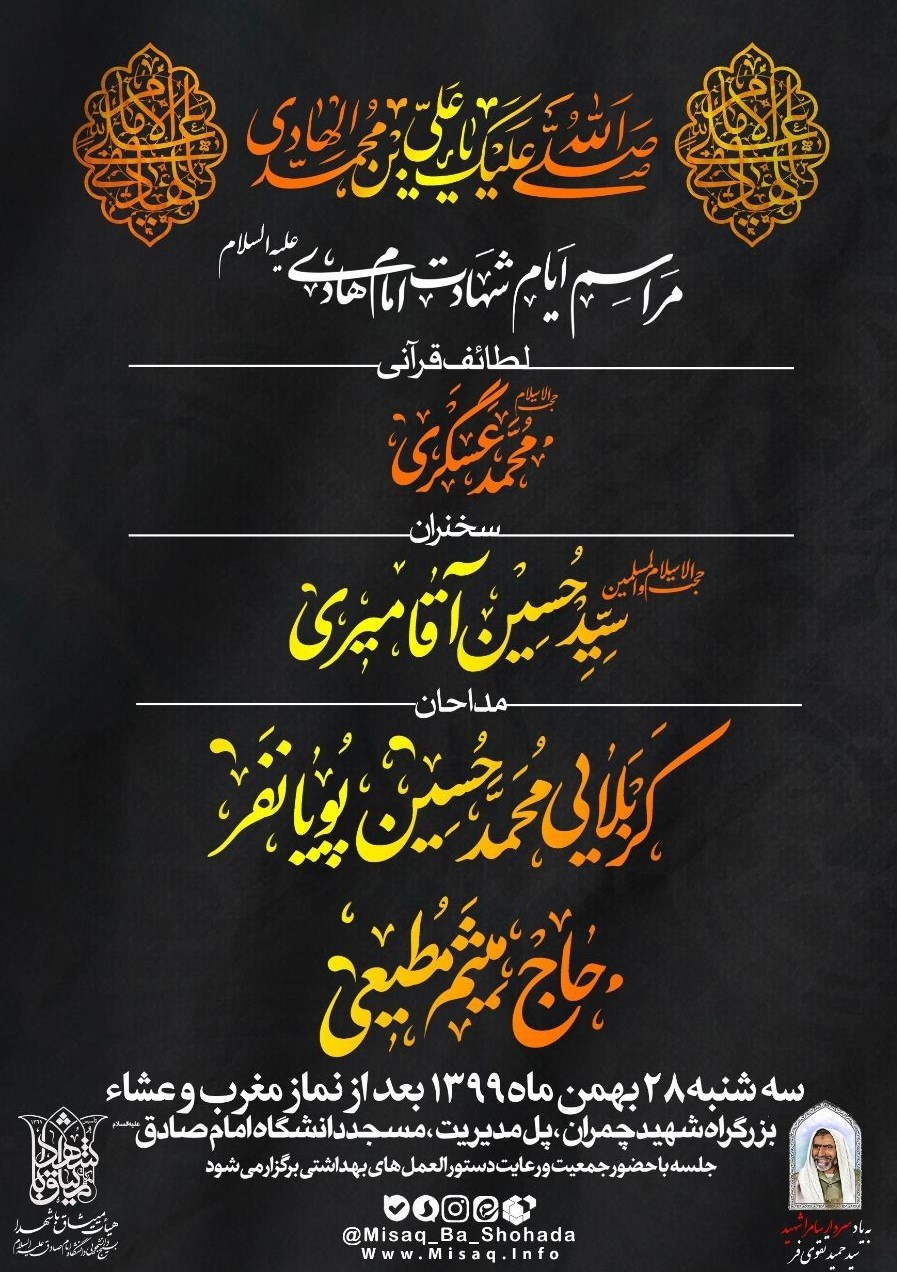 صلی الله علیک یا علی بن محمد الهادی
مراسم ایام شهادت امام هادی علیه السلام
لطائف قرآنی
حجت الاسلام
محمد عسگری
سخنران
حجت الاسلام والمسلمین
سید حسین آقامیری
مداحان
کربلایی محمد حسین پویانفر
حاج میثم مطیعی
سه شنبه ۲۸ بهمن ماه ۱۳۹۹ بعد از نماز مغرب و عشاء
بزرگراه شهید چمران، پل مدیریت، مسجد دانشگاه امام صادق علیه السلام
جلسه با حضور جمعیت و رعایت دستورالعمل های بهداشتی برگزار می شود
@Misaq_Ba_Shohada
Www.Misaq.Info
به یاد سردار سامرا شهید
سید حمید تقوی فر
هیأت میثاق با شهدا
بسیج دانشجویی دانشگاه امام صادق علیه السلام